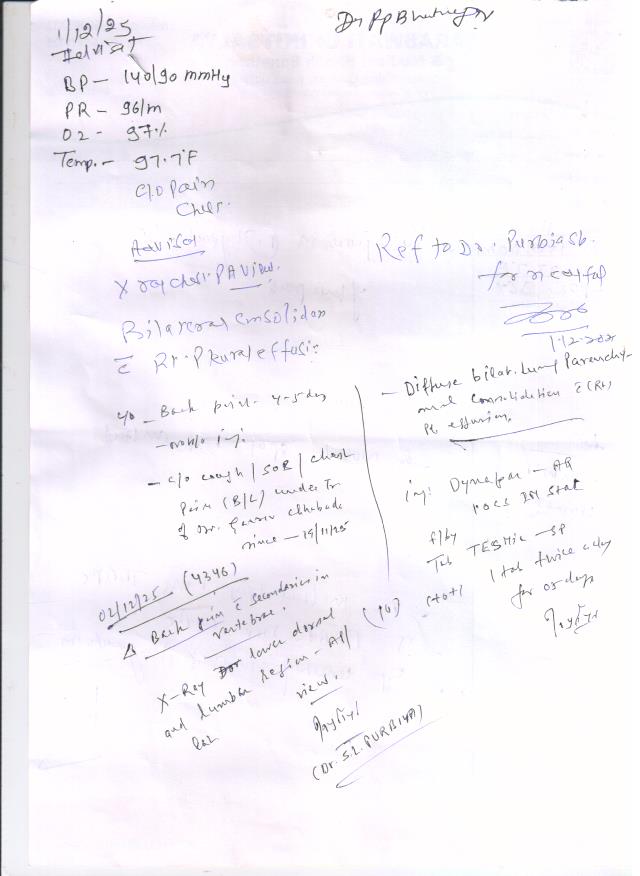 1/12/25
Dr PP Bhatnagar
BP - 140/90 mmHg
PR - 96/m
O2 - 97%
Temp. - 97.7°F
C/O Pain
Chest.
Advised
X ray chest. PA View.
Ref to Dr. Purbia sb.
for n
Bilateral Consolidation
c̄ Rt. Pleural effusion
1.12.2025
c/o - Back pain - 4-5 days
- no h/o inj.
- c/o cough / SOB / chest
Pain (B/L) under Tr
of Dr. Gaurav
since - 19/11/25
- Diffuse bilat. lung Parenchy-
mal consolidation c̄ (Rt)
Pl effusion.
inj. Dynapar - AQ
IM stat
f/by
Tab -SP
1 tab twice a day
for 05 days
02/12/25 (4346)
Δ Back pain c̄ secondaries in
vertebrae.
X-Ray lower dorsal
and lumbar region - AP/
Lat view.
(Dr. S.L. PURBIYA)